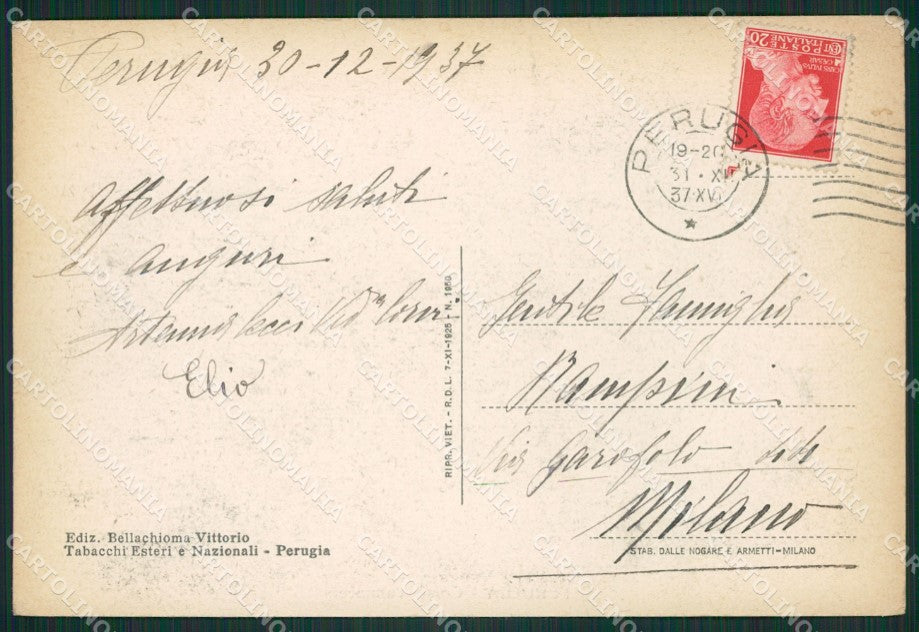 Perugia 30-12-1937
Affettuosi saluti
e auguri
Elio
Ediz. Bellachioma Vittorio
Tabacchi Esteri e Nazionali - Perugia
RIPR. VIET. - R.D.L. 7-XI-1925 - N. 1950
POSTE ITALIANE
CENT 20
CAIVS IVLIVS
CAESAR
PERUGIA
19-20
31 · XII
37·XVI
Gentile Famiglia
Rampini
Via Garofolo
Milano
STAB. DALLE NOGARE E ARMETTI - MILANO
CARTOLINOMANIA